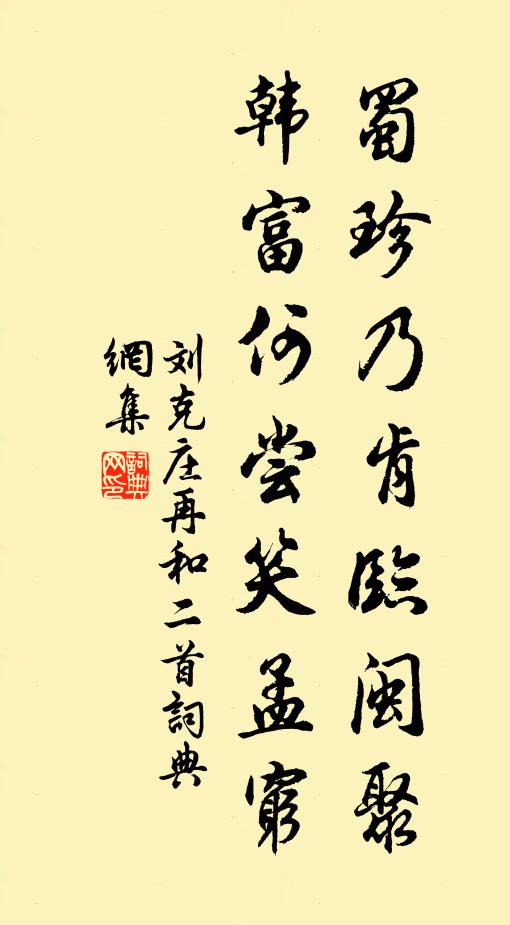 蜀珍乃肯臨閩聚
韩富何尝笑孟窮
刘克庄再和二首詞典
網集
詞典網印